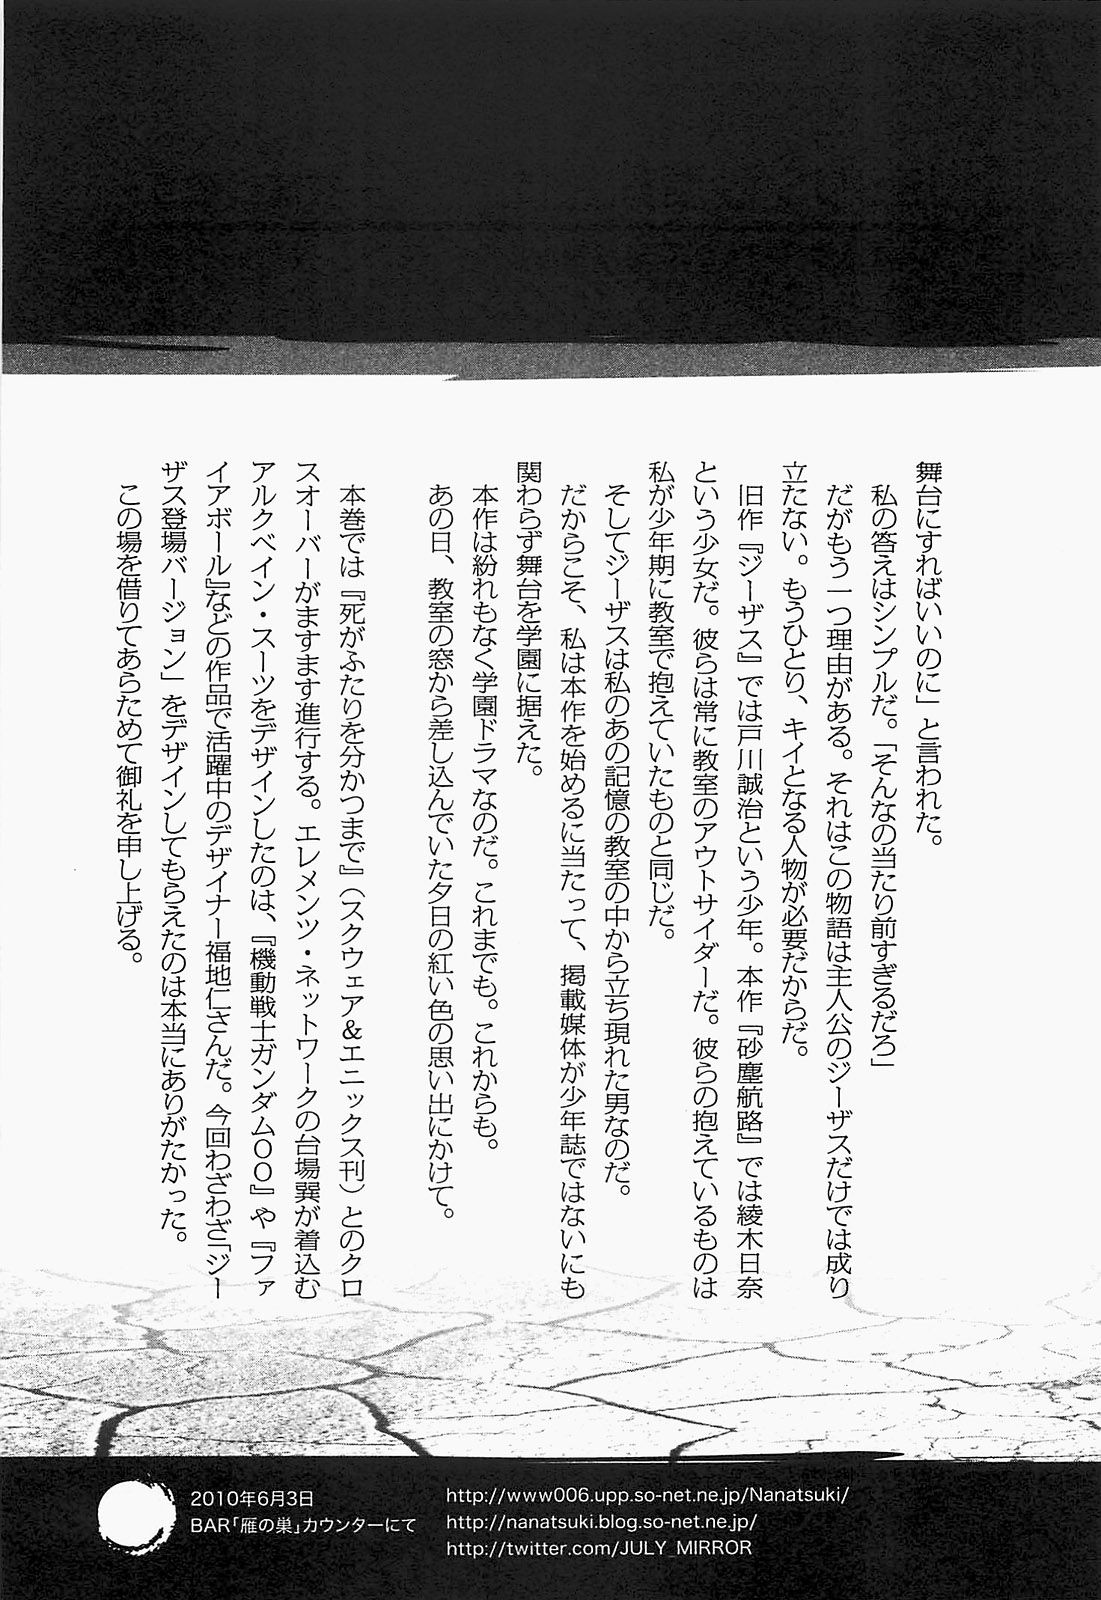 舞台にすればいいのに」と言われた。
私の答えはシンプルだ。「そんなの当たり前すぎるだろ」
だがもう一つ理由がある。それはこの物語は主人公のジーザスだけでは成り
立たない。もうひとり、キイとなる人物が必要だからだ。
旧作『ジーザス』では戸川誠治という少年。本作『砂塵航路』では綾木日奈
という少女だ。彼らは常に教室のアウトサイダーだ。彼らの抱えているものは
私が少年期に教室で抱えていたものと同じだ。
そしてジーザスは私のあの記憶の教室の中から立ち現れた男なのだ。
だからこそ、私は本作を始めるに当たって、掲載媒体が少年誌ではないにも
関わらず舞台を学園に据えた。
本作は紛れもなく学園ドラマなのだ。これまでも。これからも。
あの日、教室の窓から差し込んでいた夕日の紅い色の思い出にかけて。
本巻では『死がふたりを分かつまで』（スクウェア＆エニックス刊）とのクロ
スオーバーがますます進行する。エレメンツ・ネットワークの台場巽が着込む
アルクベイン・スーツをデザインしたのは、『機動戦士ガンダムOO』や『ファ
イアボール』などの作品で活躍中のデザイナー福地仁さんだ。今回わざわざ「ジー
ザス登場バージョン」をデザインしてもらえたのは本当にありがたかった。
この場を借りてあらためて御礼を申し上げる。
2010年6月3日
BAR「雁の巣」カウンターにて
http://www006.upp.so-net.ne.jp/Nanatsuki/
http://nanatsuki.blog.so-net.ne.jp/
http://twitter.com/JULY_MIRROR